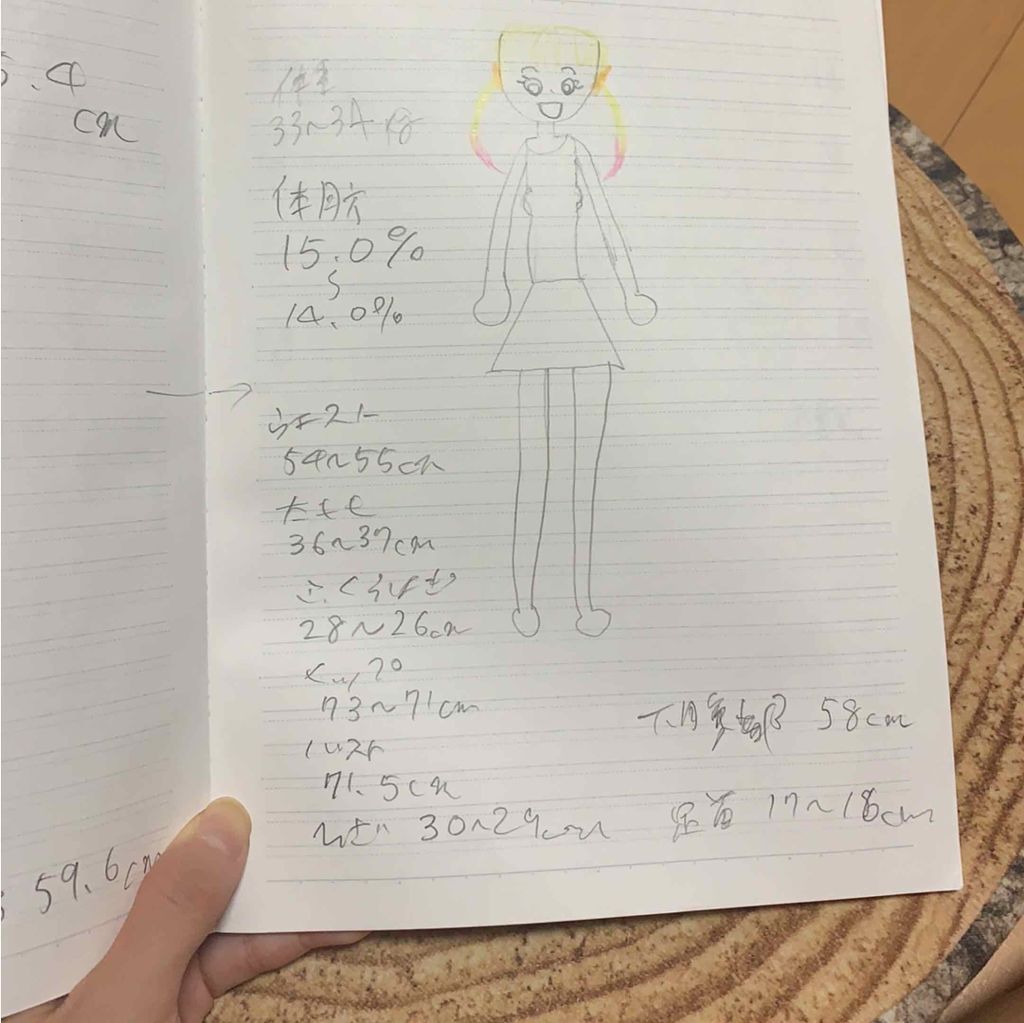 5.4
cm
体重
33~34kg
体脂肪
15.0%
~
14.0%
→
ウエスト
54~55cm
太もも
36~37cm
ふくらはぎ
28~26cm
ヒップ
73~71cm
下腹部 58cm
バスト
71.5cm
ひざ 30~29cm 足首 17~18cm
59.6cm